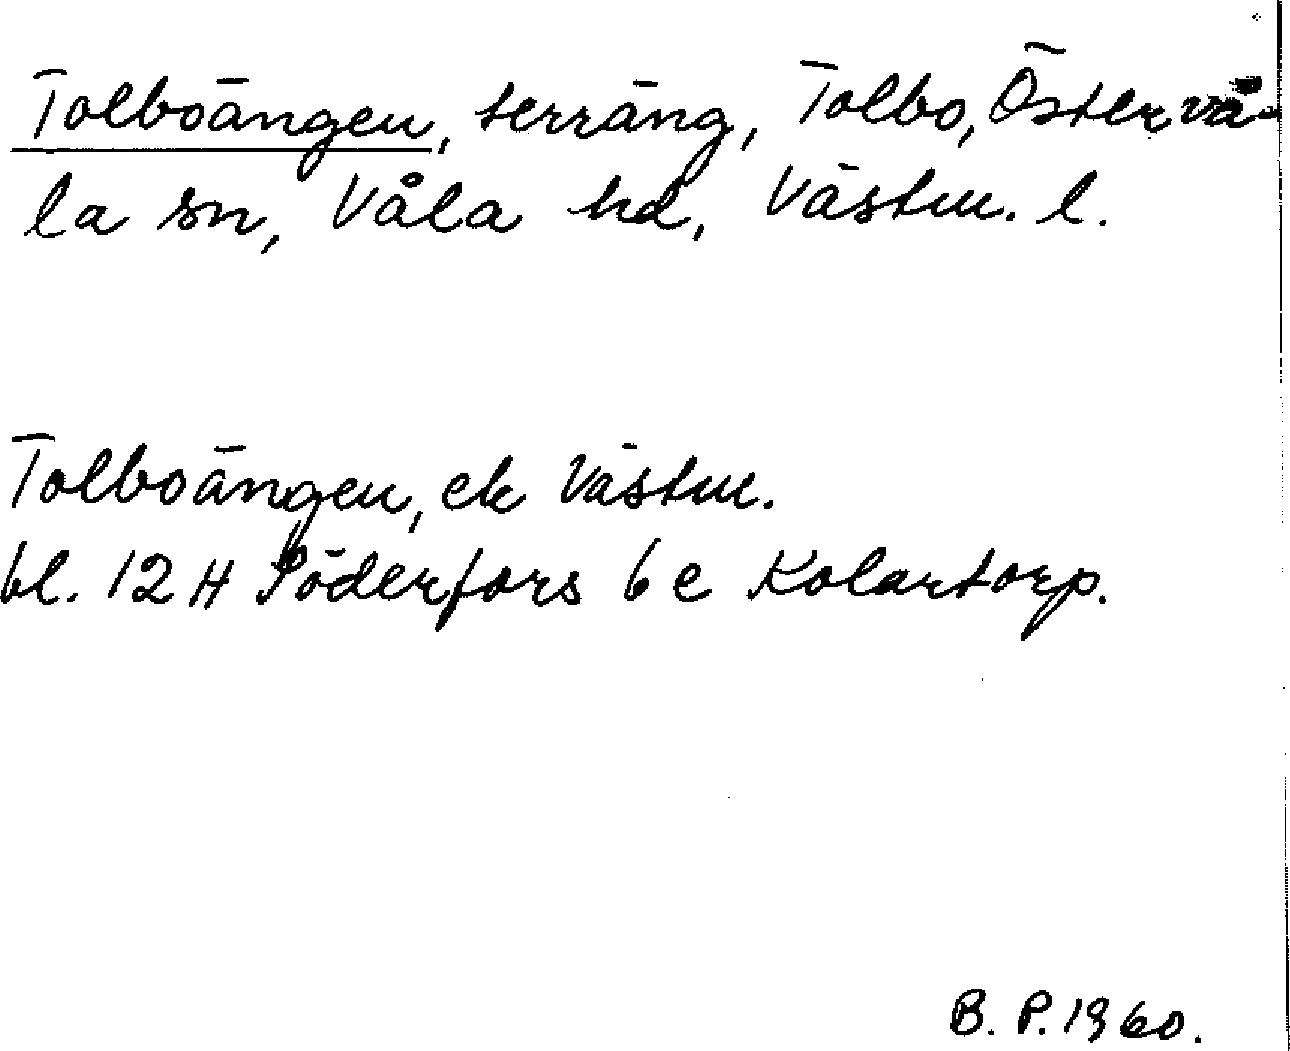 Tolboängen, terräng, Tolbo, Östervå-
la sn, Våla hd, Västm. l.
Tolboängen, ek Västm.
bl. 12 H Söderfors 6 e Kolartorp.
B. P. 1960.